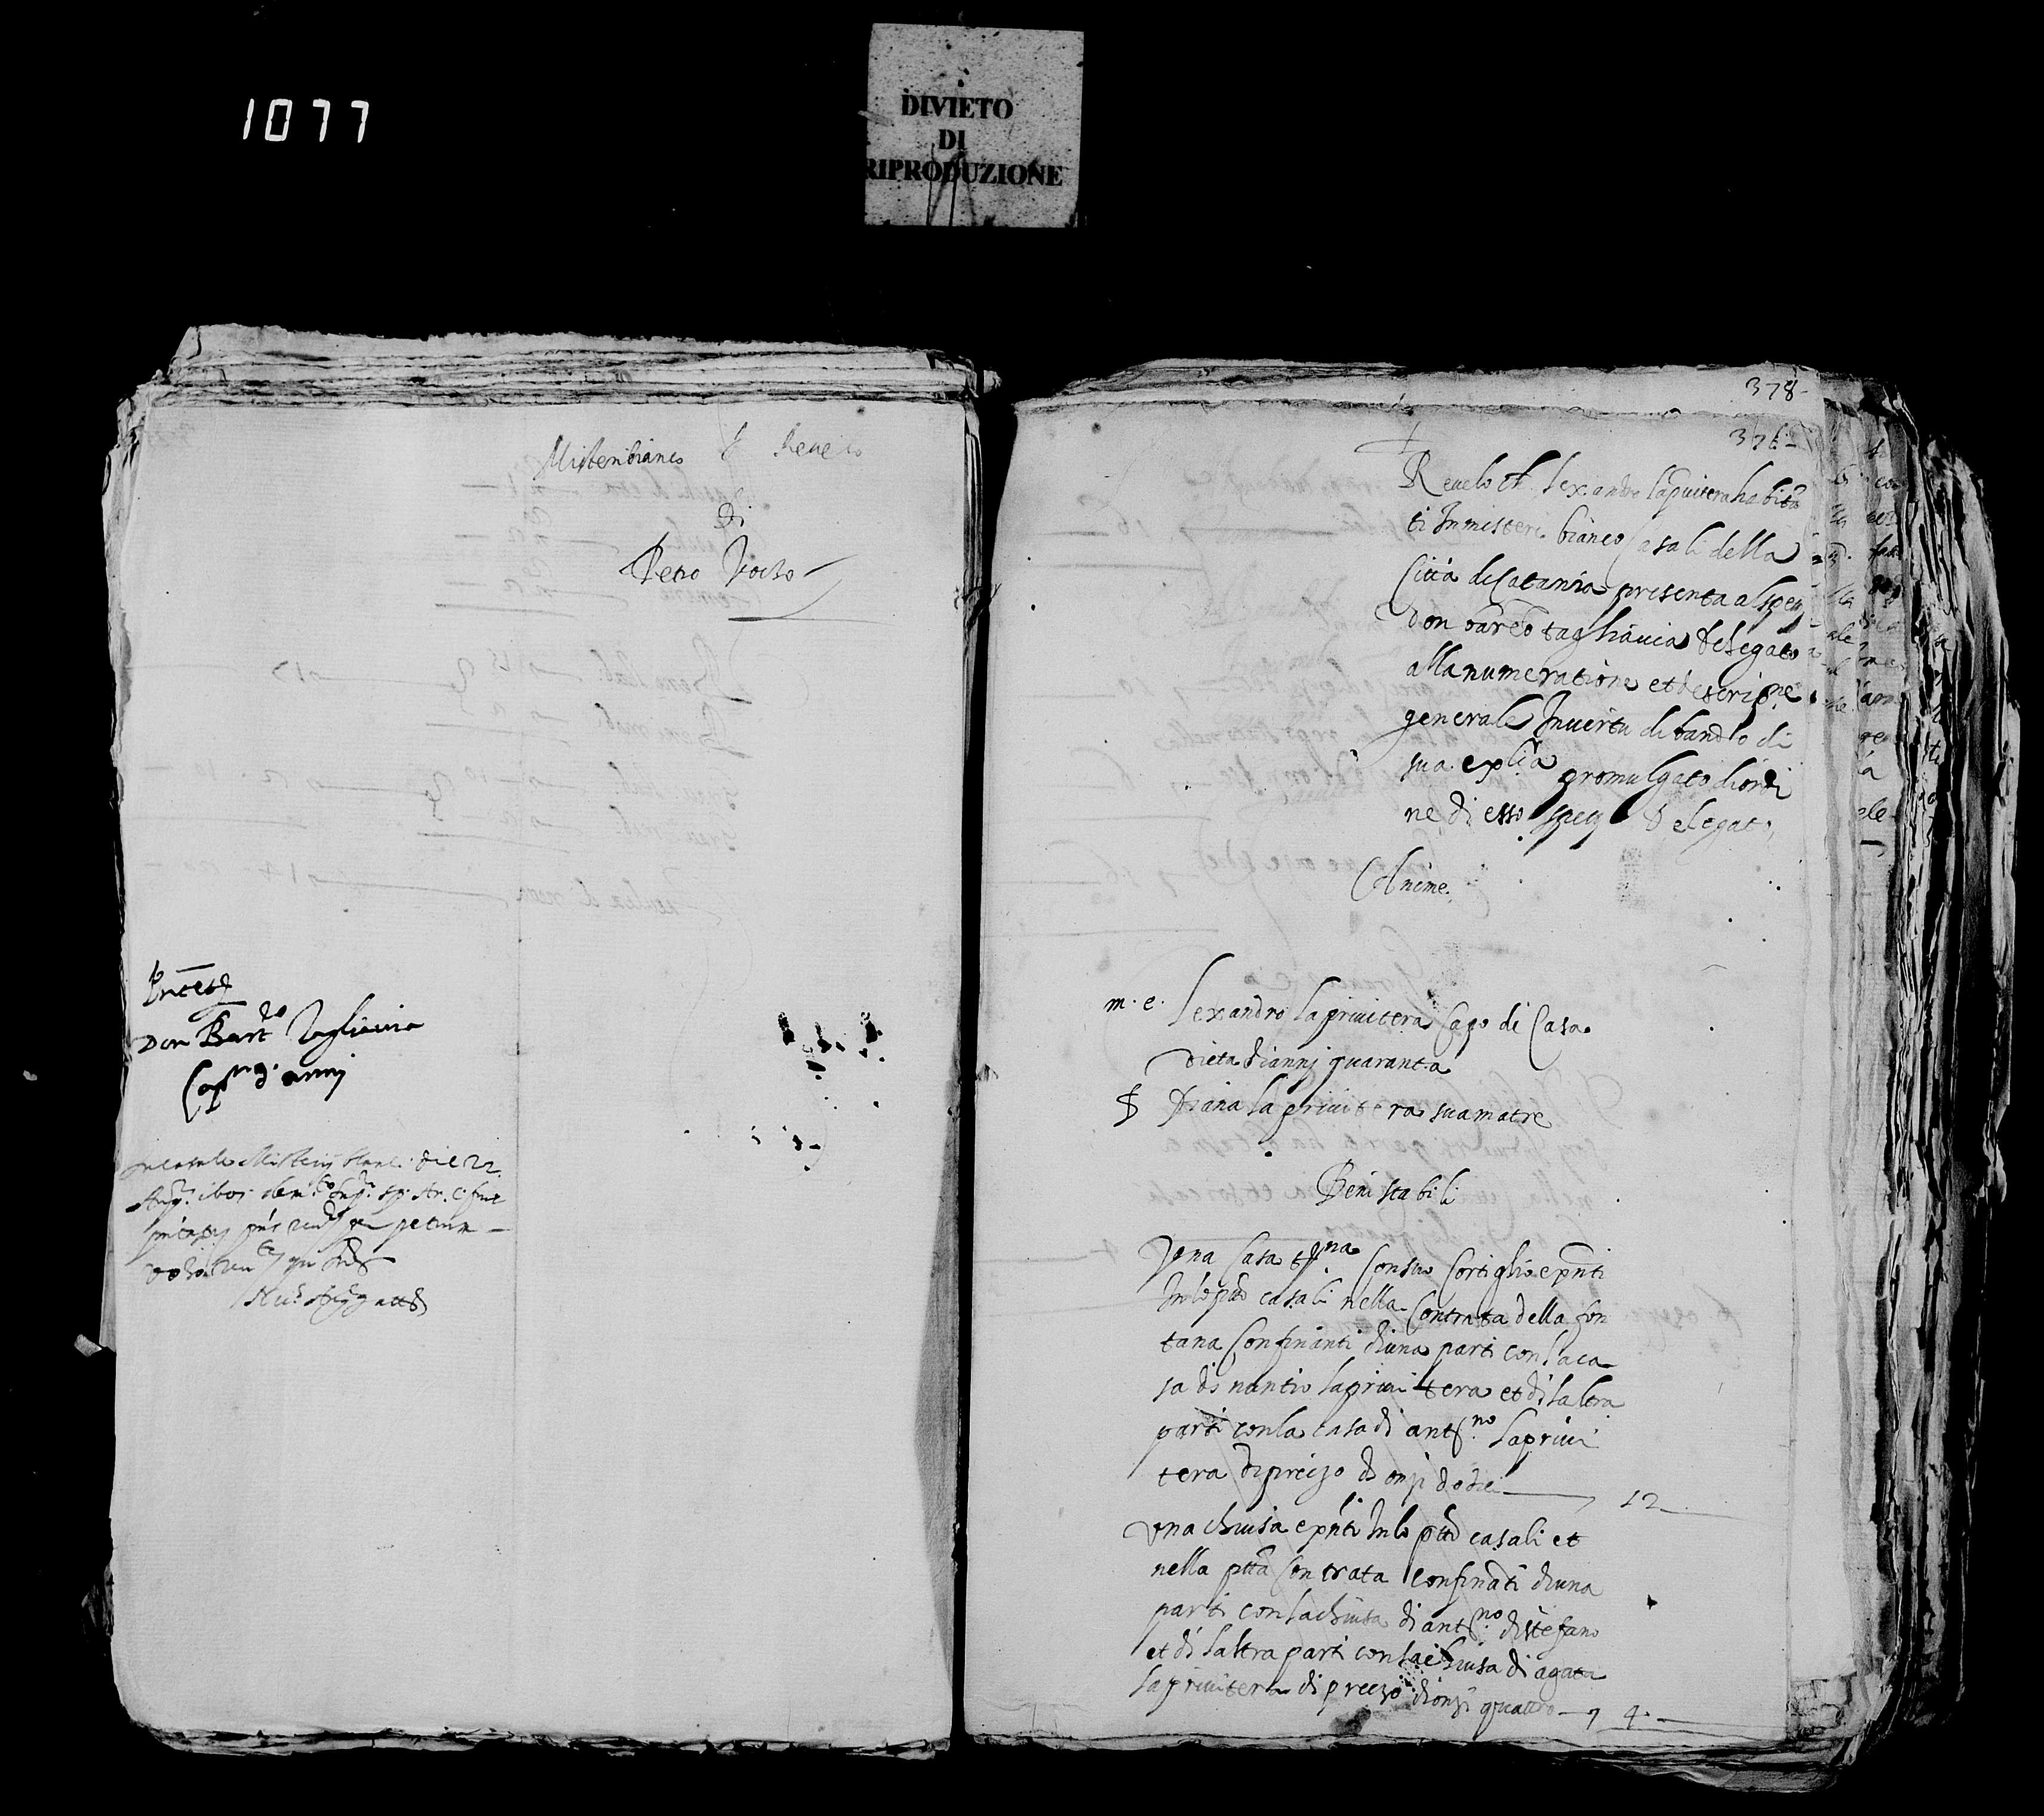 1077
DIVIETO
DI
RIPRODUZIONE
Misteribianco Revelo
Di
Petro
Don Bart.o Tagliavia
Cap.n d'armi
378
376
Revelo di lexandro laprivitera habita
ti In misteri bianco Casali della
Città di Catania presenta al spett
don bar.eo tagliavia delegato
alla numeratione et descrip.ne
generale In virtu di bando di
sua ex.lia promulgato di ordi
ne di esso spett delegato
Anime
m. e. lexandro laprivitera Capo di Casa
di eta di anni quaranta
Diana laprivitera sua matre
Beni stabili
Una Casa t.na Con suo Cortiglio ex.nti
In lo p.tto casali nella Contrata della fon
tana Confinanti di una parti con la ca
sa di nuntio laprivitera et di l altra
parti con la casa di ant.no laprivi
tera di prezzo di onzi dodici 12
una chiusa ex.nti In lo p.tto casali et
nella p.tta Contrata Confinati di una
parti con la chiusa di ant.no di stefano
et di l altra parti con la chiusa di agata
laprivitera di prezzo di onzi quattro 4